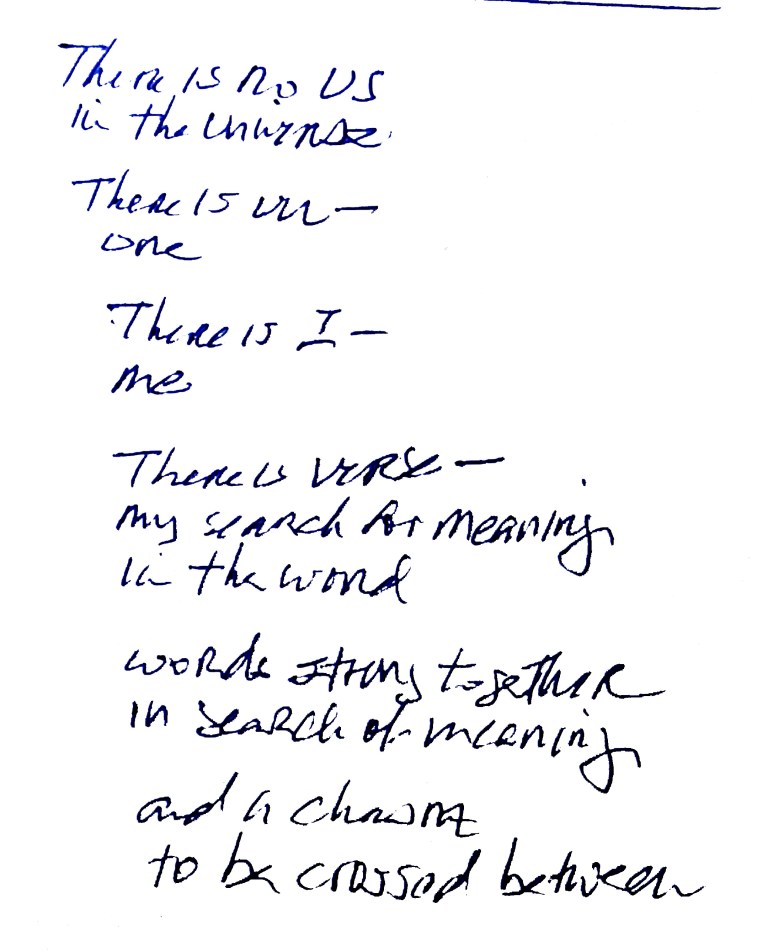 There is no US
in the universe.
There is un—
one
There is I—
me
There is VERSE—
my search for meaning
in the word
words strung together
in search of meaning
and a
to be crossed between